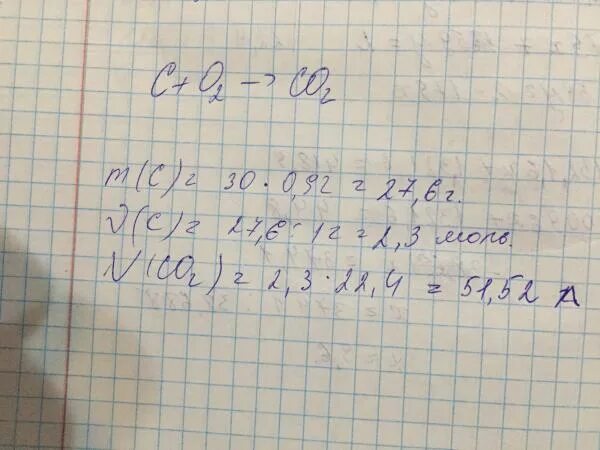 C + O₂ → CO₂
m(C) = 30 · 0,92 = 27,6 г.
ν(C) = 27,6 : 12 = 2,3 моль.
V(CO₂) = 2,3 · 22,4 = 51,52 л